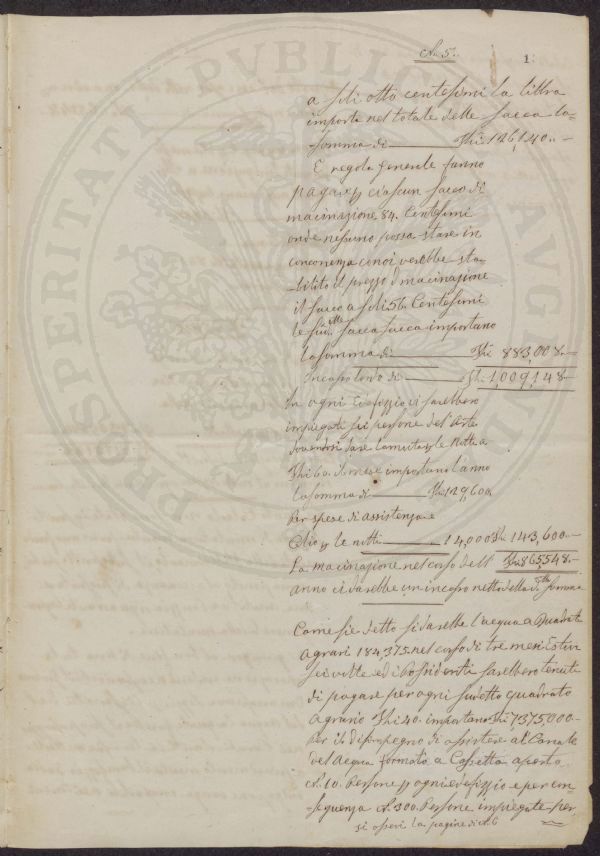 N. 5.. 1.
a soli otto centesimi la libbra
importa nel totale delle sacca la
somma di 126,140.. -
E regola generale fanno
pagare p ciascun sacco di
macinazione 84. Centesimi
onde nessuno possa stare in
concorrenza con noi verebbe sta-
-bilito il prezzo d macinazione
il sacco a soli 56. Centesimi
le sacca sacca importano
la somma di 883,008. -
Incasso lordo di 1,009,148 -
In ogni Edifizzio ci sarebbero
impiegati sei persone dell'Arte
dovendosi dare la muta p le notte a
60. il mese importano l'anno
la somma di 129,600.
Per spese di assistenza e
Olio p le notti 14,000 143,600. -
La macinazione nel corso dell' 865,548. -
anno ci darebbe un incasso netto della somma
Come si è detto si darebbe l'acqua a Quadrati
Agrari 184,375. nel corso di tre mesi Estivi
sei volte ed i Possidenti sarebbero tenuti
di pagare per ogni sudetto quadrato
Agrario 40. importano 7,375,000 -
Per il disimpegno di assistere al Canale
del Acqua formato a Cassetta aperto
N. 10. Persone p ogni edifizzio e per con-
-seguenza N. 300. Persone impiegate per
si osservi la pagine di N. 6